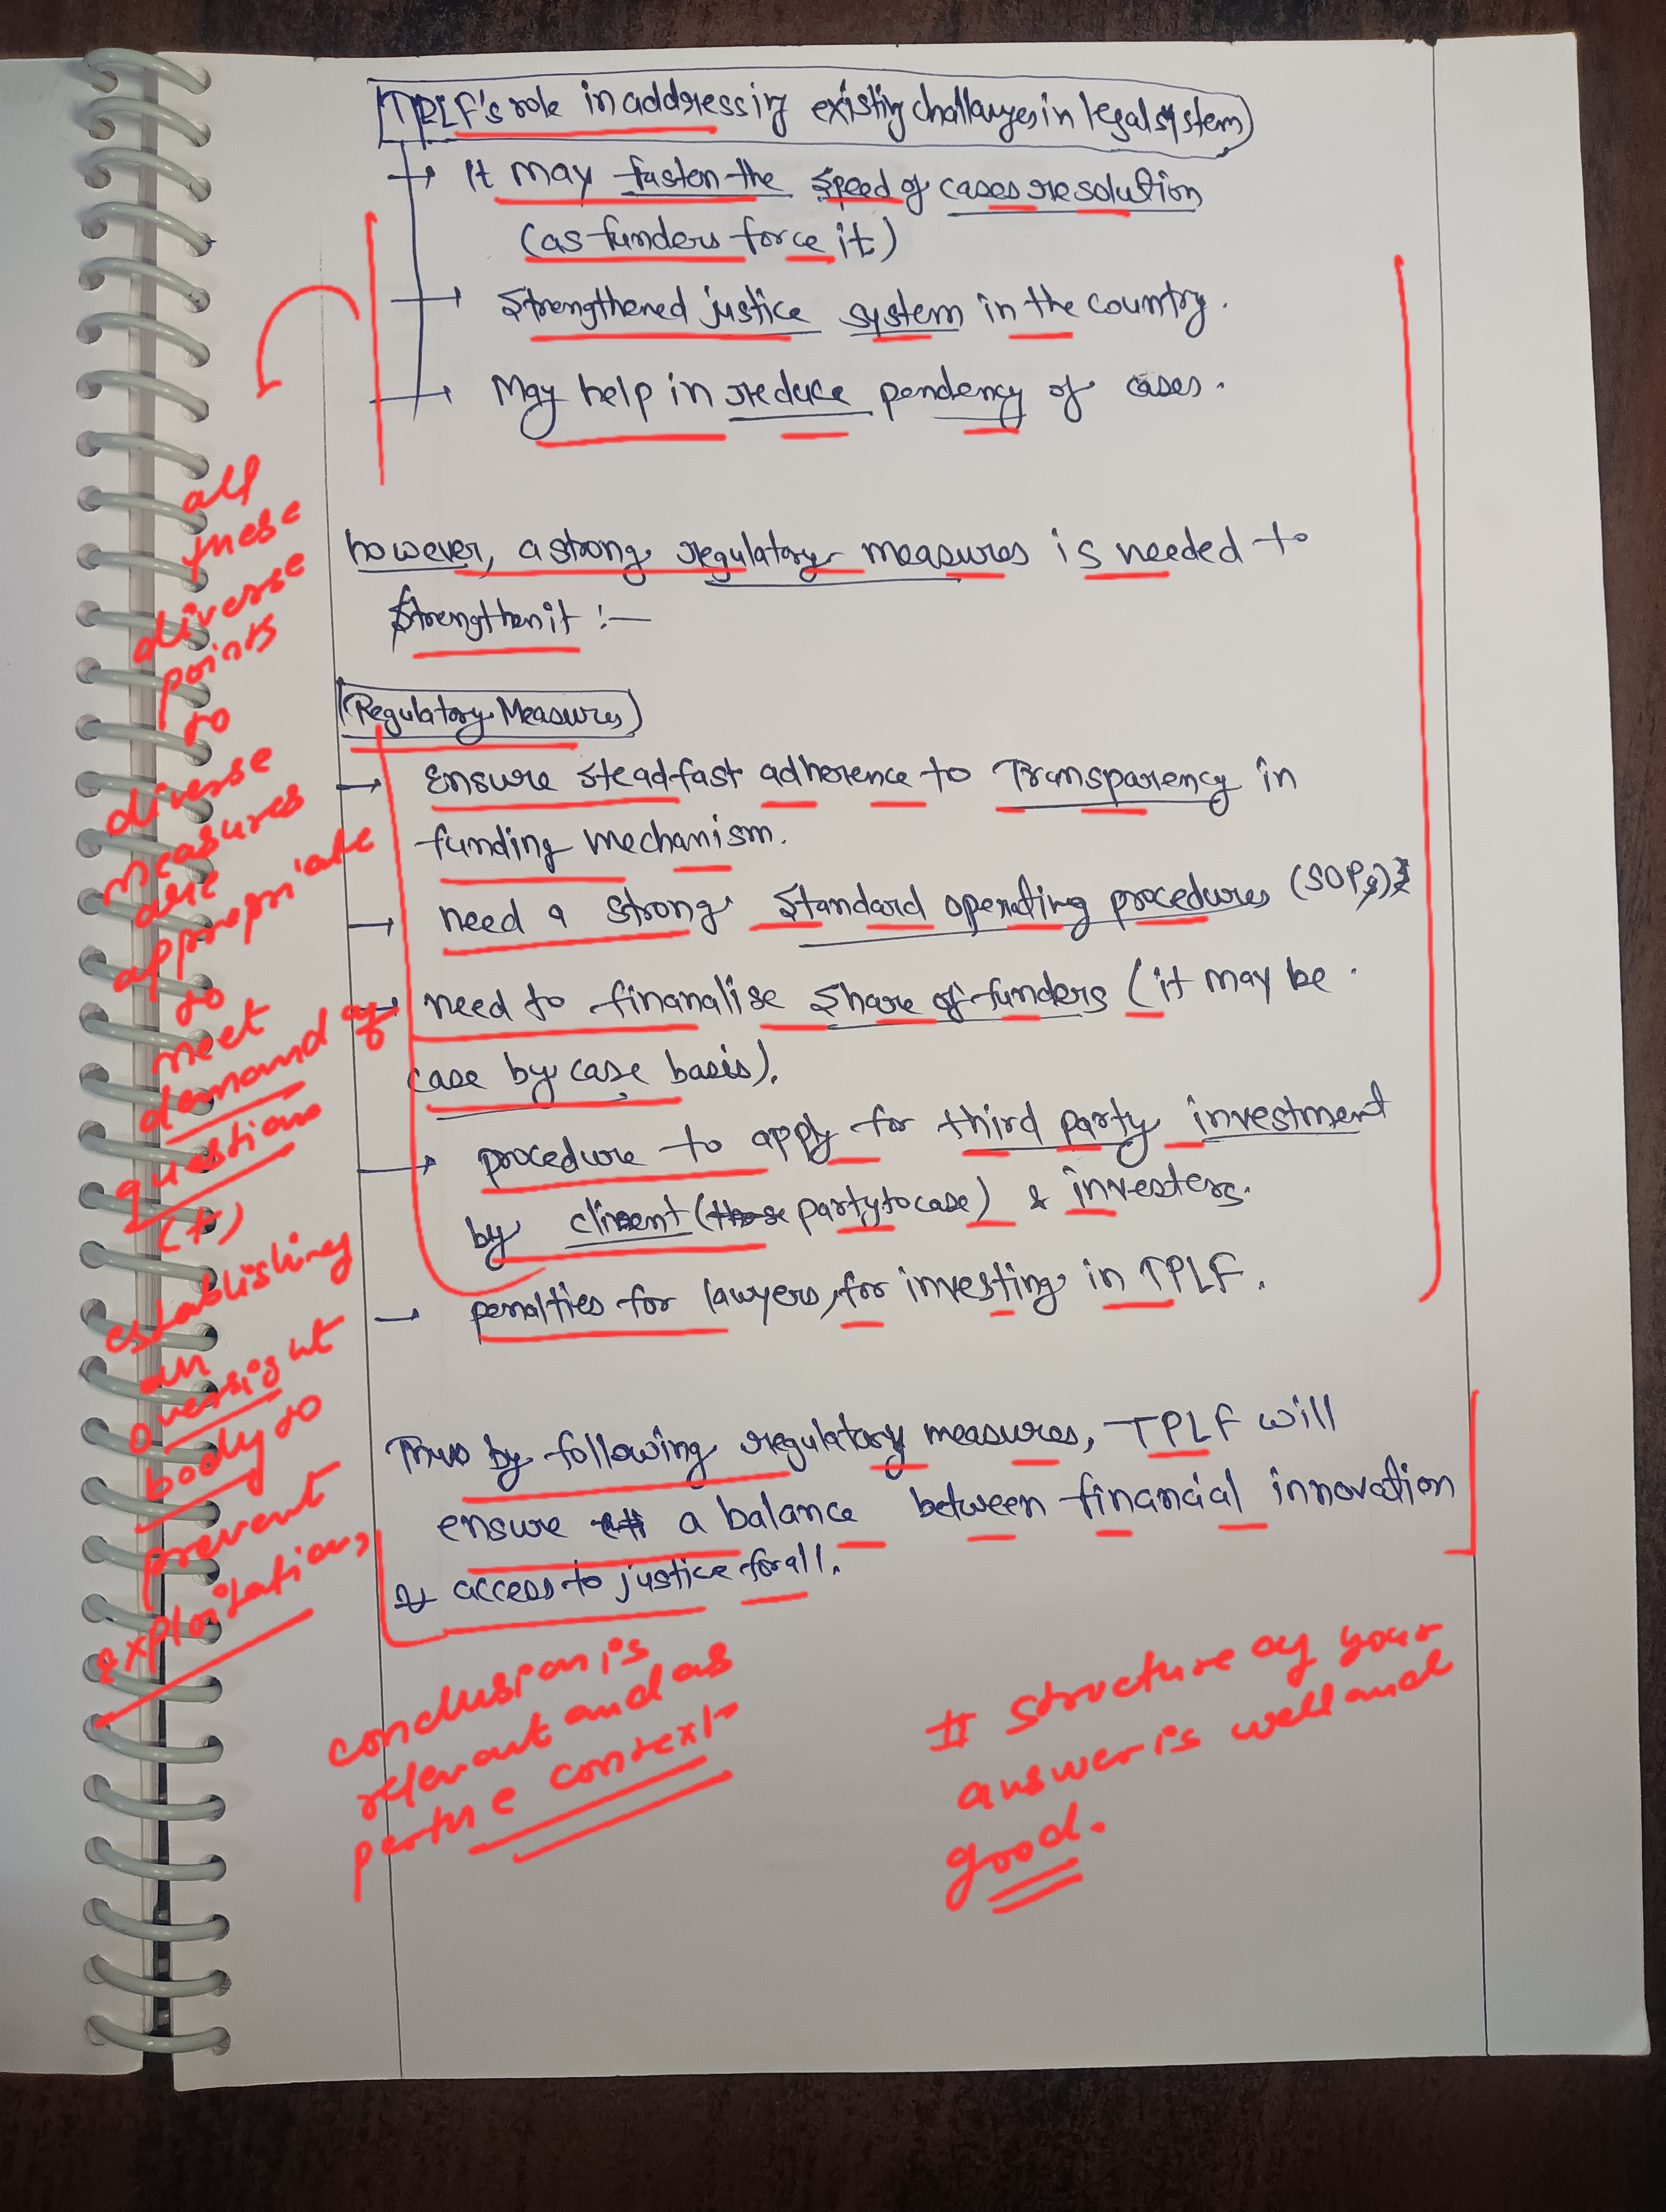 TPLF's role in addressing existing challanges in legal system
It may fasten the speed of cases resolution
(as funders force it)
Strengthened justice system in the country.
May help in reduce pendency of cases.
however, a strong regulatory measures is needed to
Strengthen it :-
Regulatory Measures
Ensure steadfast adherence to Transparency in
funding mechanism.
need a strong standard operating procedures (SOPs)
need to finanalise share of funders (it may be
case by case basis).
procedure to apply for third party investment
by client (those party to case) & investers.
penalties for lawyers, for investing in TPLF.
Thus by following regulatory measures, TPLF will
ensure a balance between financial innovation
& access to justice for all.
all
these
diverse
points
to
diverse
measures
are
appropriate
to
meet
demand of
question
(+)
establishing
an
oversight
body to
prevent
exploitation,
conclusion is
relevant and as
per the context
# structure of your
answer is well and
good.